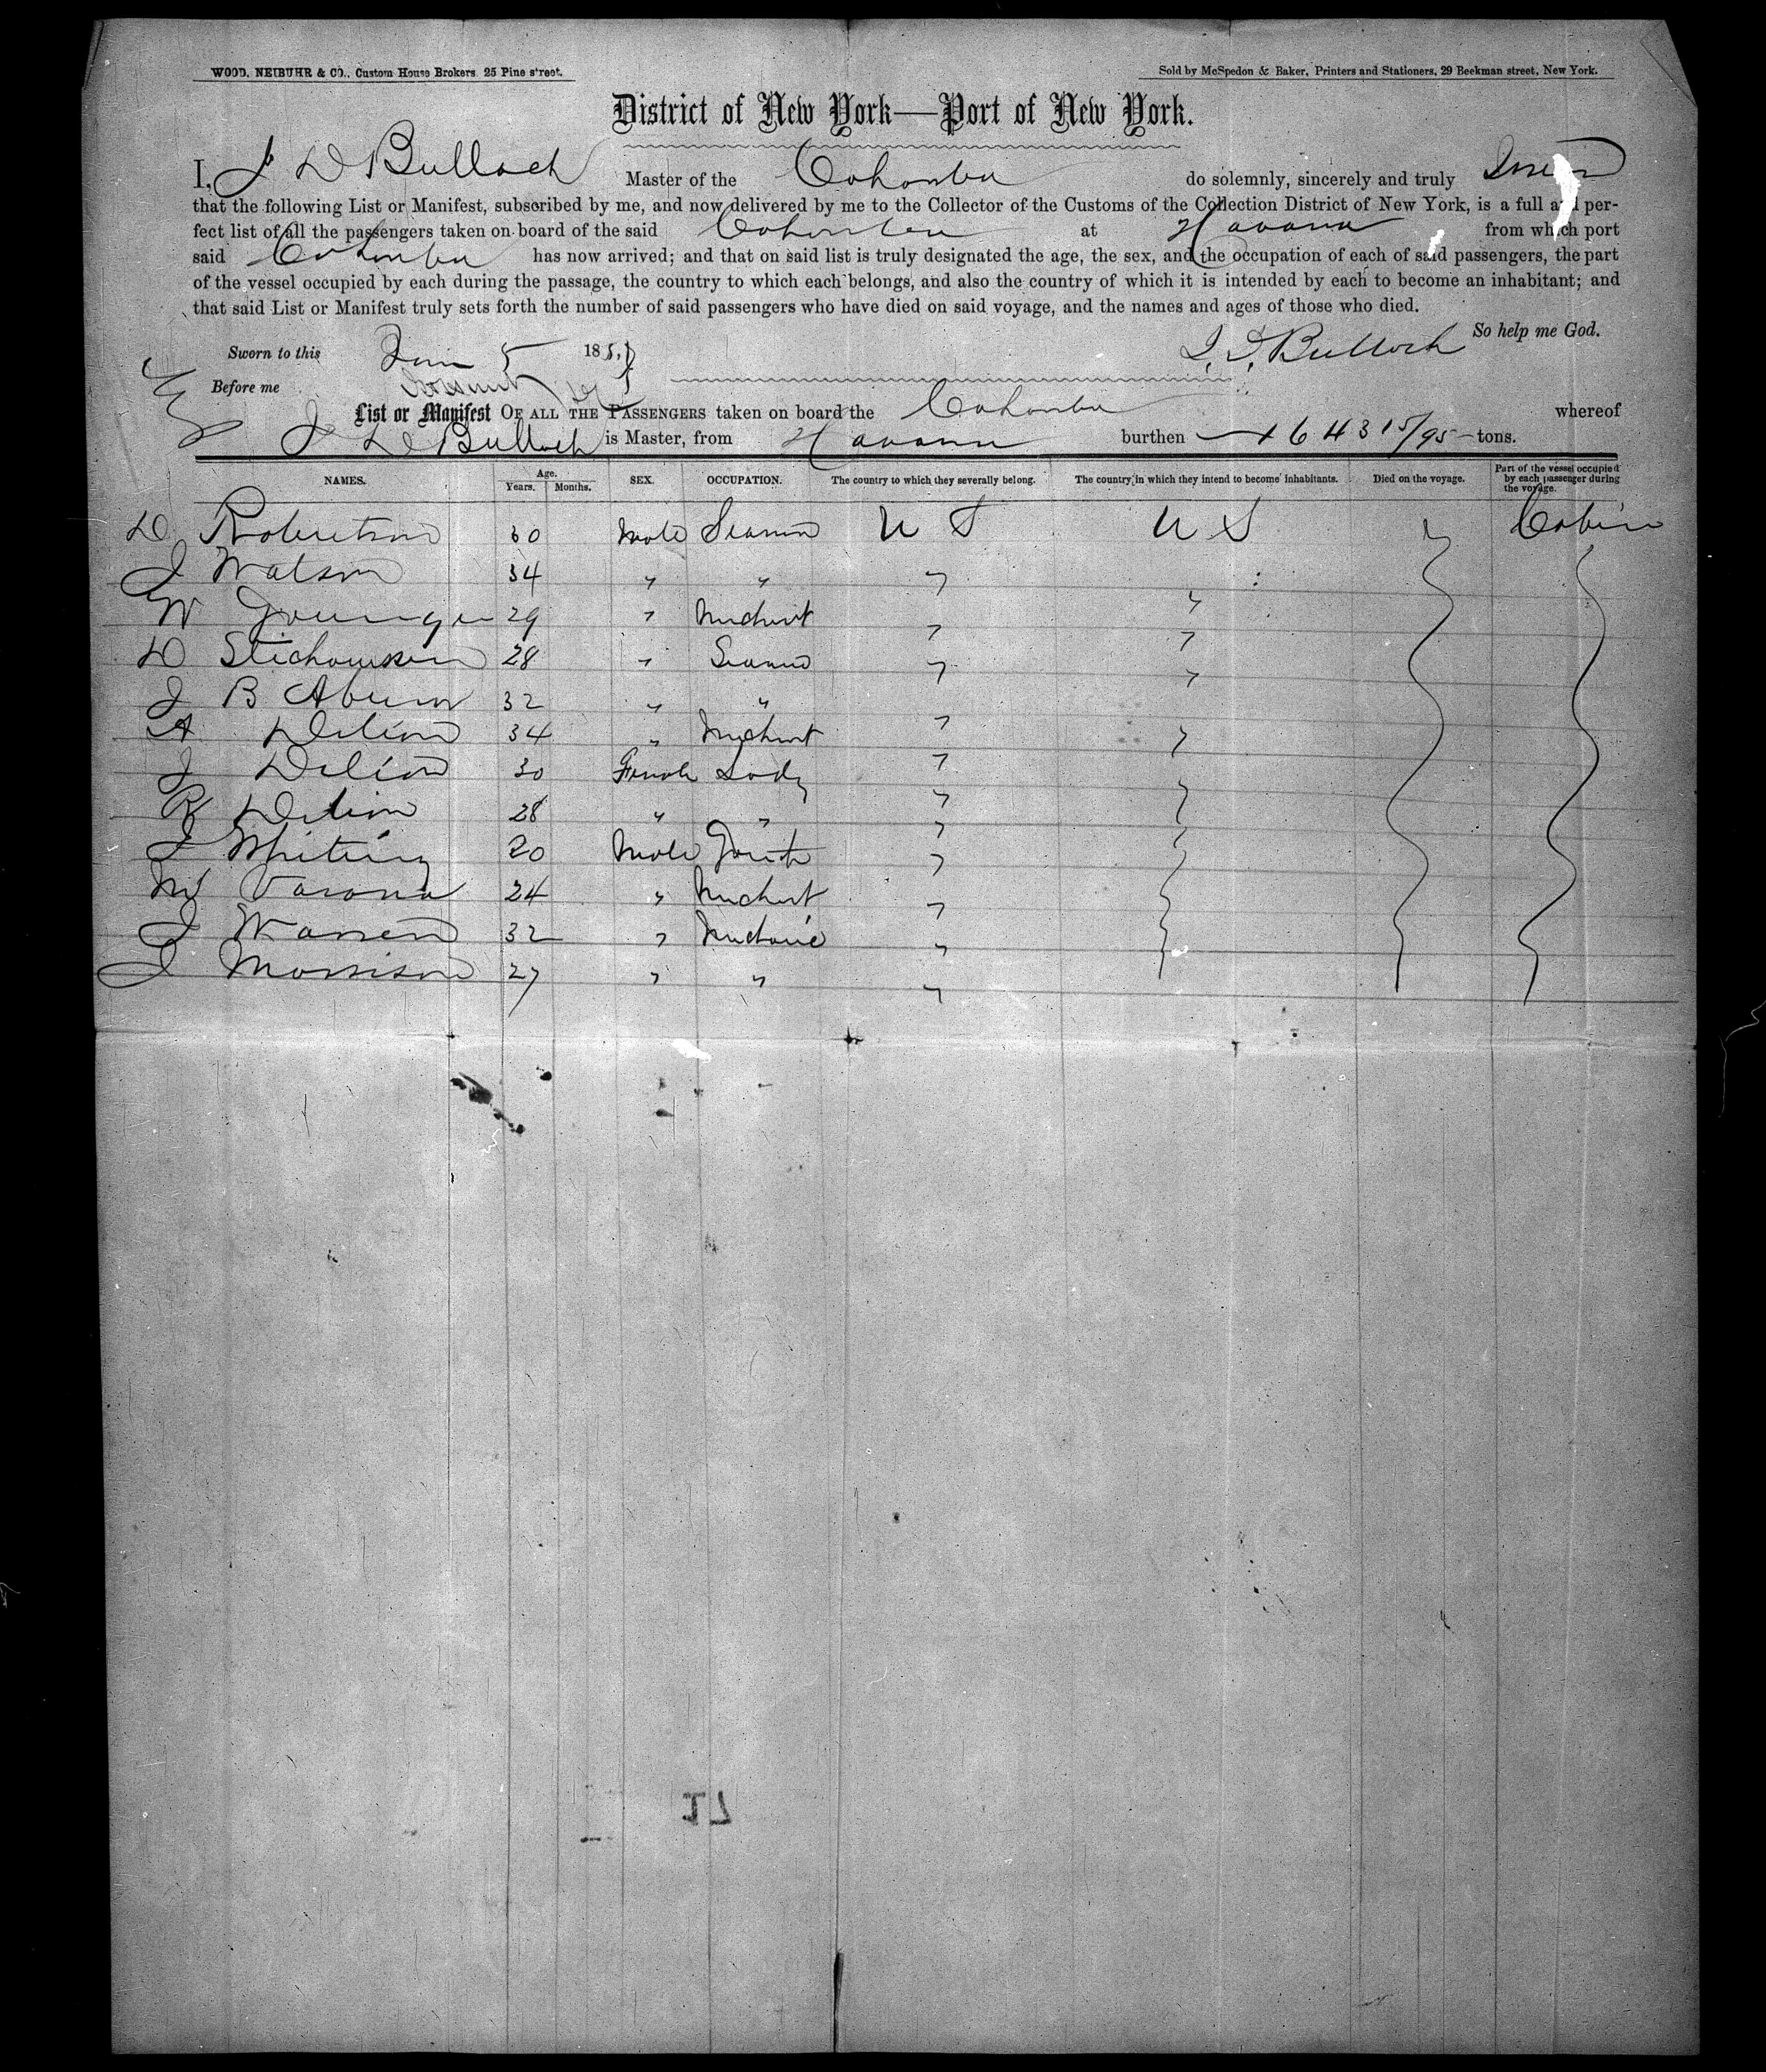 WOOD, NEIBUHR & CO., Custom House Brokers. 25 Pine street.
Sold by McSpedon & Baker, Printers and Stationers, 29 Beekman street, New York.
District of New York—Port of New York.
I, J D Bulloch Master of the Cahawba do solemnly, sincerely and truly Swear
that the following List or Manifest, subscribed by me, and now delivered by me to the Collector of the Customs of the Collection District of New York, is a full and per-
fect list of all the passengers taken on board of the said Cahawba at Havana from which port
said Cahawba has now arrived; and that on said list is truly designated the age, the sex, and the occupation of each of said passengers, the part
of the vessel occupied by each during the passage, the country to which each belongs, and also the country of which it is intended by each to become an inhabitant; and
that said List or Manifest truly sets forth the number of said passengers who have died on said voyage, and the names and ages of those who died.
So help me God.
Sworn to this 5 185
J. D. Bulloch
Before me
List or Manifest OF ALL THE PASSENGERS taken on board the Cahawba whereof
J D Bulloch is Master, from Havana burthen 1643 15/95 tons.
NAMES. Age. Years. Months. SEX. OCCUPATION. The country to which they severally belong. The country in which they intend to become inhabitants. Died on the voyage. Part of the vessel occupied by each passenger during the voyage.
D Robertson 30 Male Seaman U S U S Cabin
J Watson 34 " " "
W Younger 29 " Merchant " "
D 28 " Seaman " "
J B 32 " " " "
A 34 " Merchant " "
J 30 Female Lady " "
R 28 " " " "
J Whiting 20 Male Youth " "
M Varona 24 " Merchant " "
J Warren 32 " Mechanic " "
J Morrison 27 " " "
17